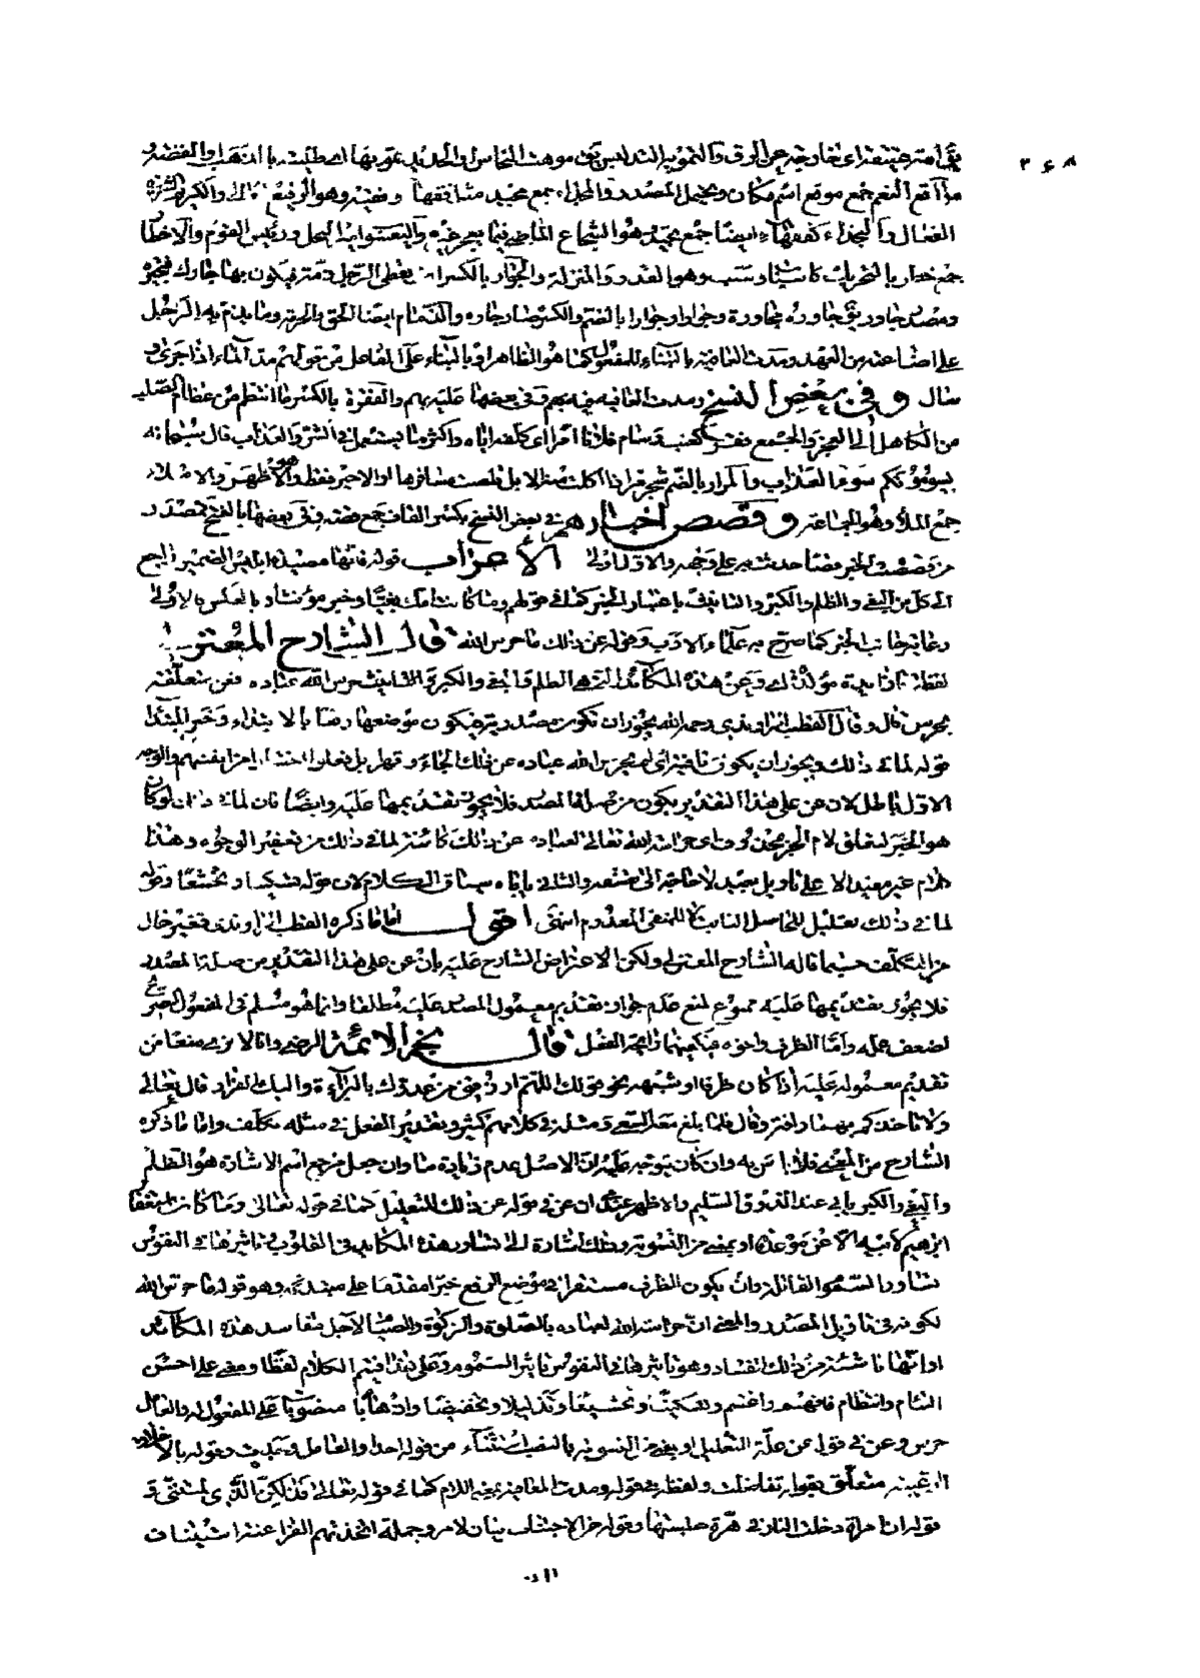 ٣٤٨
يق امترعيتنفذاى خارجة عن الرق والتمويه التدليس يق موهت النحاس او الحديد تمويها اى طليته بالذهب او الفضة و
مواقع النعم جمع موقع اسم مكان ويحتمل المصدر والمجداء جمع مجيد مثل فقهاء وفقيه وهو الرفيع والكريم الشريف
الفعال والنجداء كفقهاء ايضا جمع نجيد وهو الشجاع الماضى فيما يعجز غيره واليعسوب امير النحل ورئيس القوم والاخطار
جمع خطر بالتحريك كاسباب وسبب وهو القدر والمنزلة والجوار بالكسر ان يعطى الرجل ذمة فيكون بها جارك فتجيره
ومصدر جاور يق جاوره مجاورة وجوارا وجوارا بالضم والكسر صار جاره والذمام ايضا الحق والحرمة وما يذم به الرجل
على اضاعته من العهد ومدت العافية بالبناء للمفعول كما هو الظاهر او بالبناء على الفاعل من قولهم مد الماء اذا جرى و
سال وفى بعض النسخ ومدت العافية فيه بهم وفى بعضها عليه بهم والفقرة بالكسر ما انتظم من عظام الصلب
من الكاهل الى العجز والجمع فقر كعنب وسام فلانا امرا اى كلفه اياه واكثر ما يستعمل فى الشر والعذاب قال سبحانه
يسومونكم سوء العذاب والمرار بالضم شجر مر اذا اكلت منه الابل قلصت مشافرها او الاخير فقط وهو الاظهر والاملاء
جمع الملاء وهو الجماعة وقصص اخبارهم فى بعض النسخ بكسر القاف جمع قصة وفى بعضها بالفتح مصدر
من قصصت الخبر قصا حدثت به على وجهه والاول اولى الاعراب قوله فانها مصيدة ابليس الضمير راجع
الى كل من البغى والظلم والكبر والتانيث باعتبار الخبر كما فى قولهم وما كانت امك بغيا وخبر مؤنثاد بالعكس بالاولى
رعاية جانب الخبر كما صرح به علماء الادب وقوله عن ذلك ما حرس الله قال الشارح المعتزلى
لفظة ما زايدة مؤكدة اى وعن هذه المكائد التى هى الظلم والبغى والكبر والتانيث حرس الله عباده فعن متعلقة
بحرس قال وقال القطب الراوندى رحمه الله يجوز ان تكون مصدرية فيكون موضعها رفعا بالابتداء وخبر المبتدا
قوله لما فى ذلك ويجوز ان يكون نافية اى لم يحرس الله عباده عن ذلك الجاء وقهرا بل فعلوا اختيارا من انفسهم والوجه
الاول باطل لان عن على هذا التقدير يكون من صلة المصدر فلا يجوز تقديمها عليه وايضا فان لما فى ذلك لو كان
هو الخبر لتعلق لام الجر بمحذوف اى حراسة الله تعالى لعباده عن ذلك كائنة لما فى ذلك من تعفير الوجوه وهذا
كلام غير مفيد الا على تاويل بعيد لا حاجة الى تعسفه والثانى ياباه سياق الكلام لان قوله تسكينا وتخشيعا وقوله
لما فى ذلك تعليل للحاصل الثابت لا للمنفى المعدوم انتهى اقول اما ما ذكره القطب الراوندى فغير خال
من التكلف حسبما قاله الشارح المعتزلى ولكن الاعتراض الشارح عليه بان عن على هذا التقدير من صلة المصدر
فلا يجوز تقديمها عليه ممنوع لمنع عدم جواز تقديم معمول المصدر عليه مطلقا وانما هو مسلم فى المفعول الصريح
لضعف عمله واما الظرف واخوه فيكفيهما رايحة الفعل قال نجم الائمة الرضى وانا لا ارى منعا من
تقديم معموله عليه اذا كان ظرفا او شبهه نحو قولك اللهم ارزقنى من عدوك بالبرائة واليك الفرار قال تعالى
ولا تاخذكم بهما رافة وقال فلما بلغ معه السعى ومثله فى كلامهم كثير وتقدير الفعل فى مثله تكلف واما ما ذكره
الشارح من المعنى فلا باس به وان كان يتوجه عليه ان الاصل عدم زيادة ما وان جعل مرجع اسم الاشارة هو الظلم
والبغى والكبر يابى عنه الذوق السليم والاظهر عندى ان عن فى قوله عن ذلك للتعليل كما فى قوله تعالى وما كان استغفار
ابراهيم لابيه الا عن موعدة او بمعنى من النشوية وذلك اشارة الى تساور هذه المكايد فى القلوب وتاثيرها فى النفوس
تساور السموم القاتلة وان يكون الظرف مستقرا فى موضع الرفع خبرا مقدما على مبتدئه وهو قوله ما حرس الله
لكونه فى تاويل المصدر والمعنى ان حراسة الله لعباده بالصلوة والزكوة والصيام لاجل مفاسد هذه المكائد
او انها ناشئة من ذلك الفساد وهو تاثيرها فى النفوس تاثير السموم وعلى هذا فيتم الكلام لفظا ومعنى على احسن
التيام وانتظام فافهم واغتنم وتسكينا وتخشيعا وتذليلا وتخفيضا واذهابا منصوبات على المفعول له والعامل
حرس وعن فى قوله عن علة التعليل او بمعنى من النشوية بالنصب استثناء من قوله احدا والعامل وجدت وقوله بالاخلاق
الرغيبة متعلق بقوله تفاضلت ولفظة فى قوله ومدت العافية بمعنى اللام كما فى قوله تعالى فذلكن الذى لمتننى فيه و
قوله ان امراة دخلت النار فى هرة حبستها وقوله من الاجتناب بيان لامر وجملة اتخذتهم الفراعنة استيناف